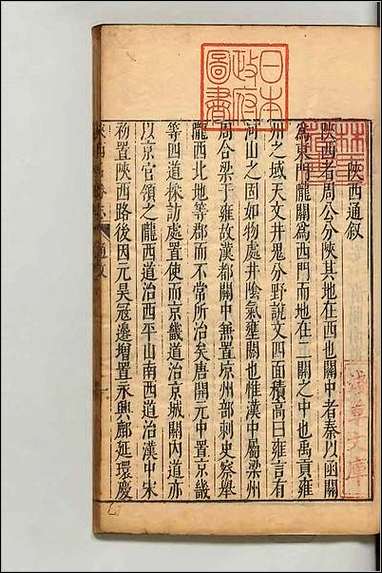 日本
政府
圖書
陝西通叙
陝西者周公分陝其地在西也關中者秦以函關
爲東門隴關爲西門而地在二關之中也禹貢雍
州之域天文井鬼分野說文四面積高曰雍言有
河山之固如物處井陰氣壅閼也惟漢中屬梁州
周合梁于雍故漢都關中無置凉州部刺史察舉
隴西北地等郡而不常所治矣唐開元中置京畿
等四道採訪處置使而京畿道治京城關內道亦
以京官領之隴西道治西平山南西道治漢中宋
初置陝西路後因元昊冦邊增置永興鄜延環慶
通叙
一
文庫